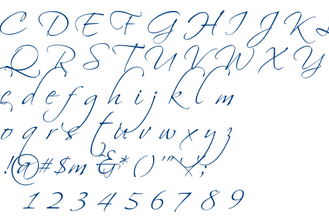 C D E F G H I J K L
Q R S T U V W X Y
c d e f g h i j k l m
o q r s t u v w x y z
!@#$m &*()"'\;
1 2 3 4 5 6 7 8 9